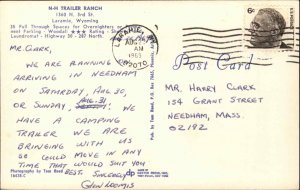 N-H TRAILER RANCH
1360 N. 3rd St.
Laramie, Wyoming
35 Pull Through Spaces for Overnighters or
Parking - Woodall ★★★★ Rating -
Laundromat - Highway 30 - 287 North
MR. CLARK,
WE ARE PLANNING
ARRIVING IN NEEDHAM
ON SATURDAY, AUG 30,
OR SUNDAY, AUG. 31 WE
HAVE A CAMPING
TRAILER WE ARE
BRINGING WITH US
SO COULD MOVE IN ANY
TIME THAT WOULD SUIT YOU
BEST. SINCERELY
Photography by Tom Beed
LARAMIE, WY
AM
1969
82070
6¢
Post Card
MR. HARRY CLARK
154 GRANT STREET
NEEDHAM, MASS.
02192